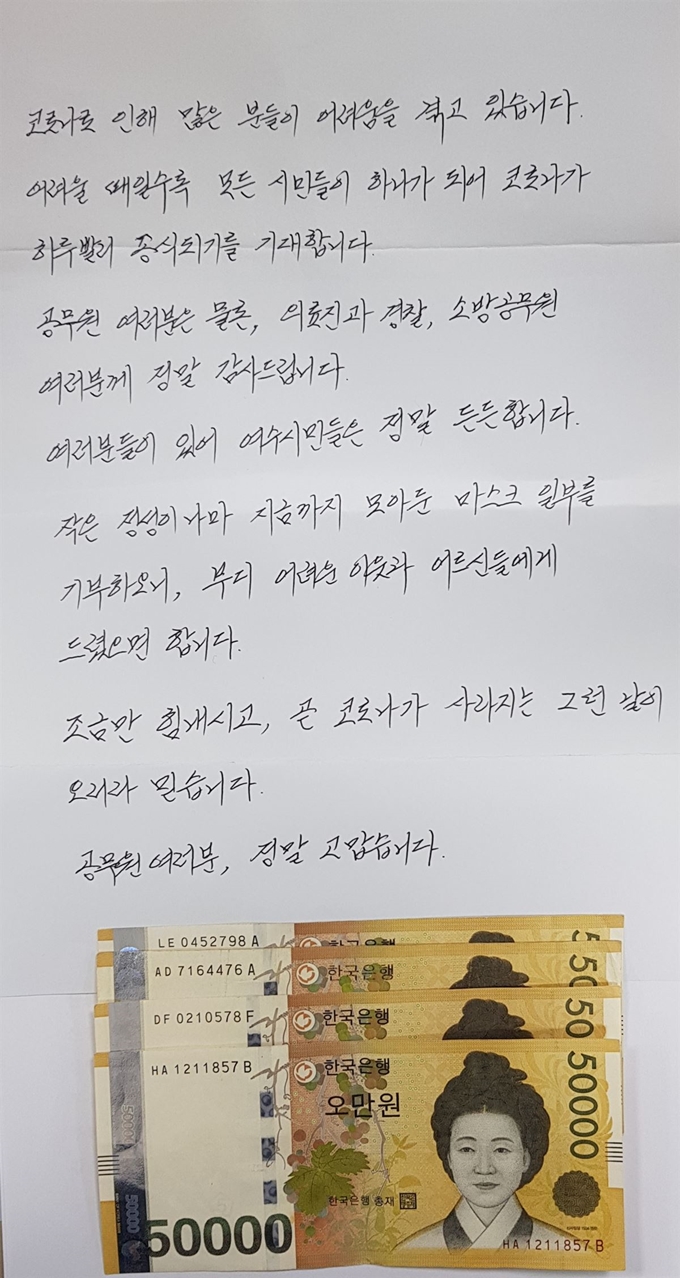 코로나로 인해 많은 분들이 어려움을 겪고 있습니다.
어려울 때일수록 모든 시민들이 하나가 되어 코로나가
하루빨리 종식되기를 기대합니다.
공무원 여러분은 물론, 의료진과 경찰, 소방공무원
여러분께 정말 감사드립니다.
여러분들이 있어 여수시민들은 정말 든든합니다.
작은 정성이나마 지금까지 모아둔 마스크 일부를
기부하오니, 부디 어려운 이웃과 어르신들에게
드렸으면 합니다.
조금만 힘내시고, 곧 코로나가 사라지는 그런 날이
오리라 믿습니다.
공무원 여러분, 정말 고맙습니다.
LE 0452798 A 한국은행 5
AD 7164476 A 한국은행 50
DF 0210578 F 한국은행 50
HA 1211857 B 한국은행 50000
오만원
한국은행 총재
50000
50000 HA 1211857 B